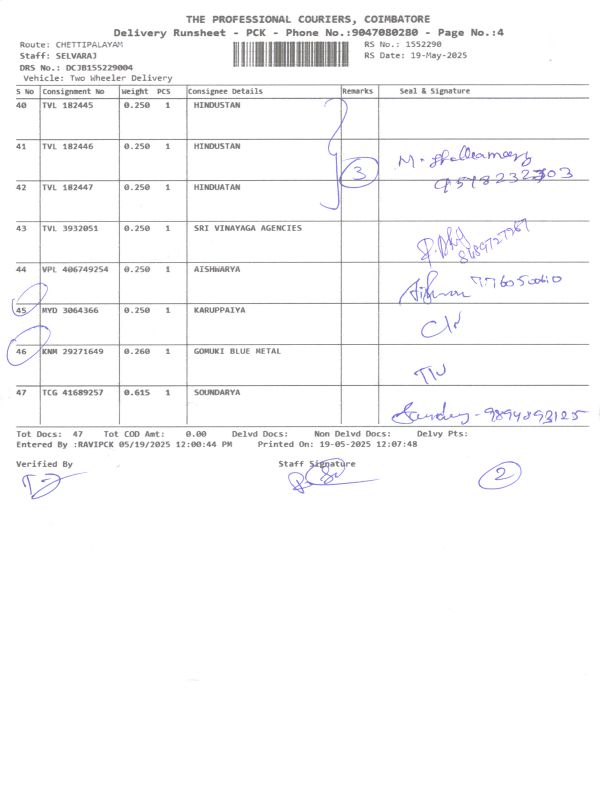 THE PROFESSIONAL COURIERS, COIMBATORE
Delivery Runsheet - PCK - Phone No.:9047080280 - Page No.:4
Route: CHETTIPALAYAM RS No.: 1552290
Staff: SELVARAJ RS Date: 19-May-2025
DRS No.: DCJB155229004
Vehicle: Two Wheeler Delivery
S No Consignment No Weight PCS Consignee Details Remarks Seal & Signature
40 TVL 182445 0.250 1 HINDUSTAN
41 TVL 182446 0.250 1 HINDUSTAN
3
42 TVL 182447 0.250 1 HINDUATAN
43 TVL 3932051 0.250 1 SRI VINAYAGA AGENCIES
44 VPL 406749254 0.250 1 AISHWARYA
45 MYD 3064366 0.250 1 KARUPPAIYA
46 KNM 29271649 0.260 1 GOMUKI BLUE METAL
47 TCG 41689257 0.615 1 SOUNDARYA
9894893125
Tot Docs: 47 Tot COD Amt: 0.00 Delvd Docs: Non Delvd Docs: Delvy Pts:
Entered By :RAVIPCK 05/19/2025 12:00:44 PM Printed On: 19-05-2025 12:07:48
Verified By Staff Signature
2